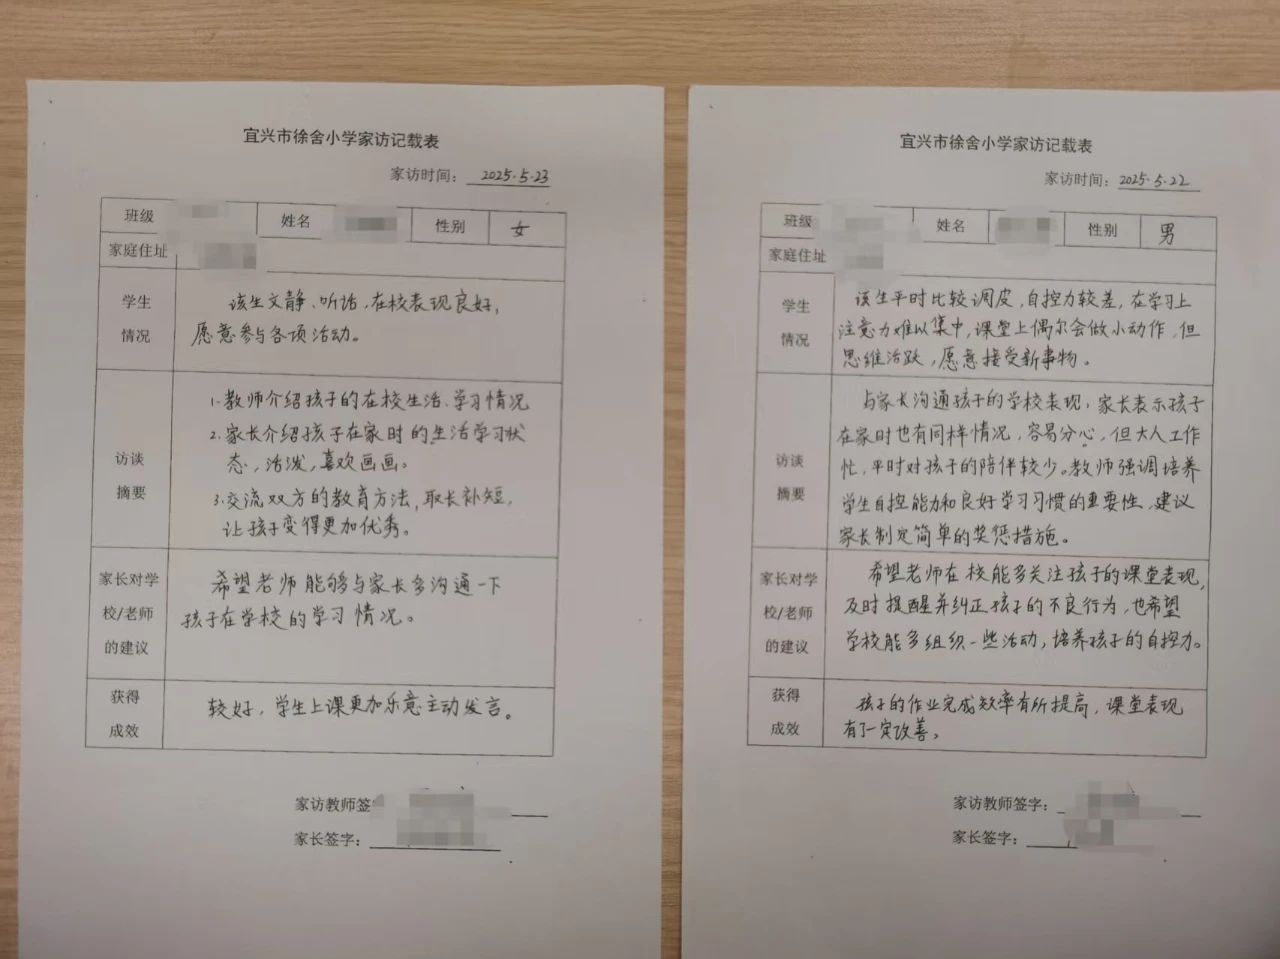 宜兴市徐舍小学家访记载表
家访时间：2025.5.23
班级 姓名 性别 女
家庭住址
学生情况
该生文静、听话，在校表现良好，
愿意参与各项活动。
访谈摘要
1.教师介绍孩子的在校生活、学习情况
2.家长介绍孩子在家时的生活学习状
态，活泼，喜欢画画。
3.交流双方的教育方法，取长补短，
让孩子变得更加优秀。
家长对学校/老师的建议
希望老师能够与家长多沟通一下
孩子在学校的学习情况。
获得成效
较好，学生上课更加乐意主动发言。
家访教师签
家长签字：
宜兴市徐舍小学家访记载表
家访时间：2025.5.22
班级 姓名 性别 男
家庭住址
学生情况
该生平时比较调皮，自控力较差，在学习上
注意力难以集中，课堂上偶尔会做小动作，但
思维活跃，愿意接受新事物。
访谈摘要
与家长沟通孩子的学校表现，家长表示孩子
在家时也有同样情况，容易分心，但大人工作
忙，平时对孩子的陪伴较少。教师强调培养
学生自控能力和良好学习习惯的重要性，建议
家长制定简单的奖惩措施。
家长对学校/老师的建议
希望老师在校能多关注孩子的课堂表现，
及时提醒并纠正孩子的不良行为，也希望
学校能多组织一些活动，培养孩子的自控力。
获得成效
孩子的作业完成效率有所提高，课堂表现
有了一定改善。
家访教师签字：
家长签字：